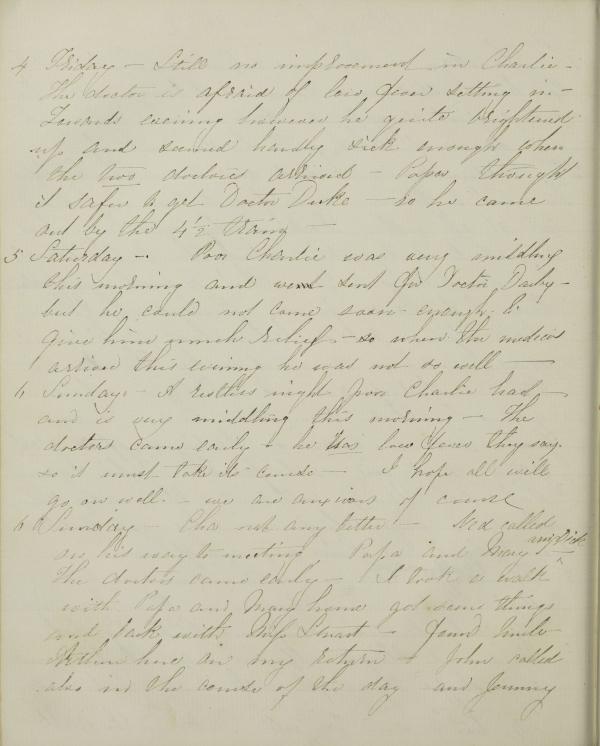 4 Friday - Still no improvement in Charlie -
The doctor is afraid of low fever setting in -
Towards evening however he quite brightened
up and seemed hardly sick enough when
the two doctors arrived - Papa thought
it safer to get Doctor Duke - so he came
out by the 4 1/2 train -
5 Saturday - Poor Charlie was very middling
this morning and went sent for Doctor Darby -
but he could not come soon enough to
give him much relief - so when the medicos
arrived this evening he was not so well -
6 Sunday - A restless night poor Charlie had -
and is very middling this morning - The
doctors came early - he has low fever they say.
so it must take its course - I hope all will
go on well - we are anxious of course
6 Sunday - Cha not any better - Ned called
on his way to meeting Papa and Mary
The doctors came early - I took a walk
with Papa and Mary home got some things
and back with Miss Stuart - found Uncle
Arthur here on my return - John called
also in the course of the day and Jenny